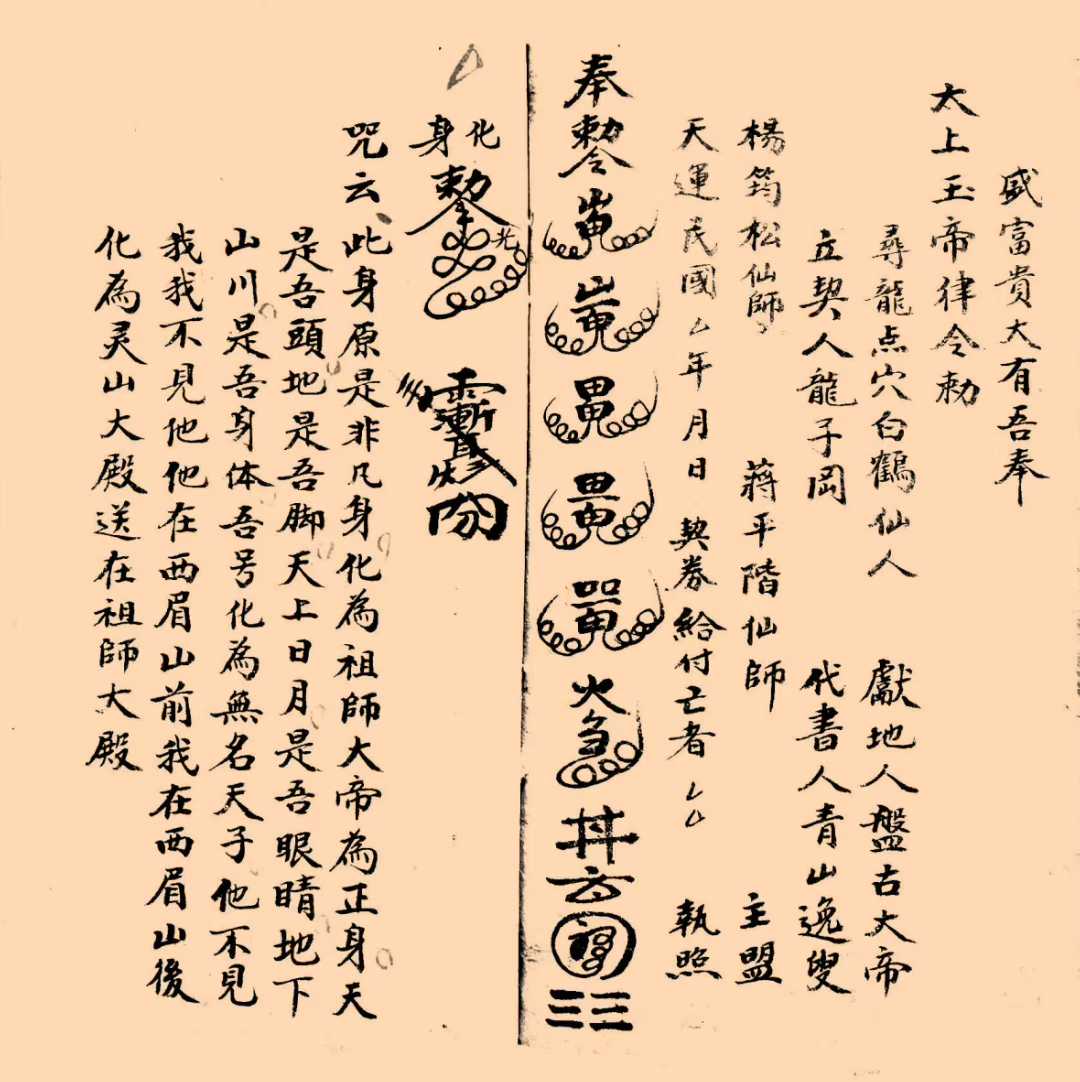 盛富貴大有吾奉
太上玉帝律令勅
尋龍点穴白鶴仙人 獻地人盤古大帝
立契人龍子岡 代書人青山逸叟
楊筠松仙師 蔣平階仙師 主盟
天運民國厶年月日 契券給付亡者厶厶 執照
奉勅令
化身
咒云、此身原是非凡身化為祖師大帝為正身天
是吾頭地是吾脚天上日月是吾眼睛地下
山川是吾身体吾号化為無名天子他不見
我我不見他他在西眉山前我在西眉山後
化為灵山大殿送在祖師大殿